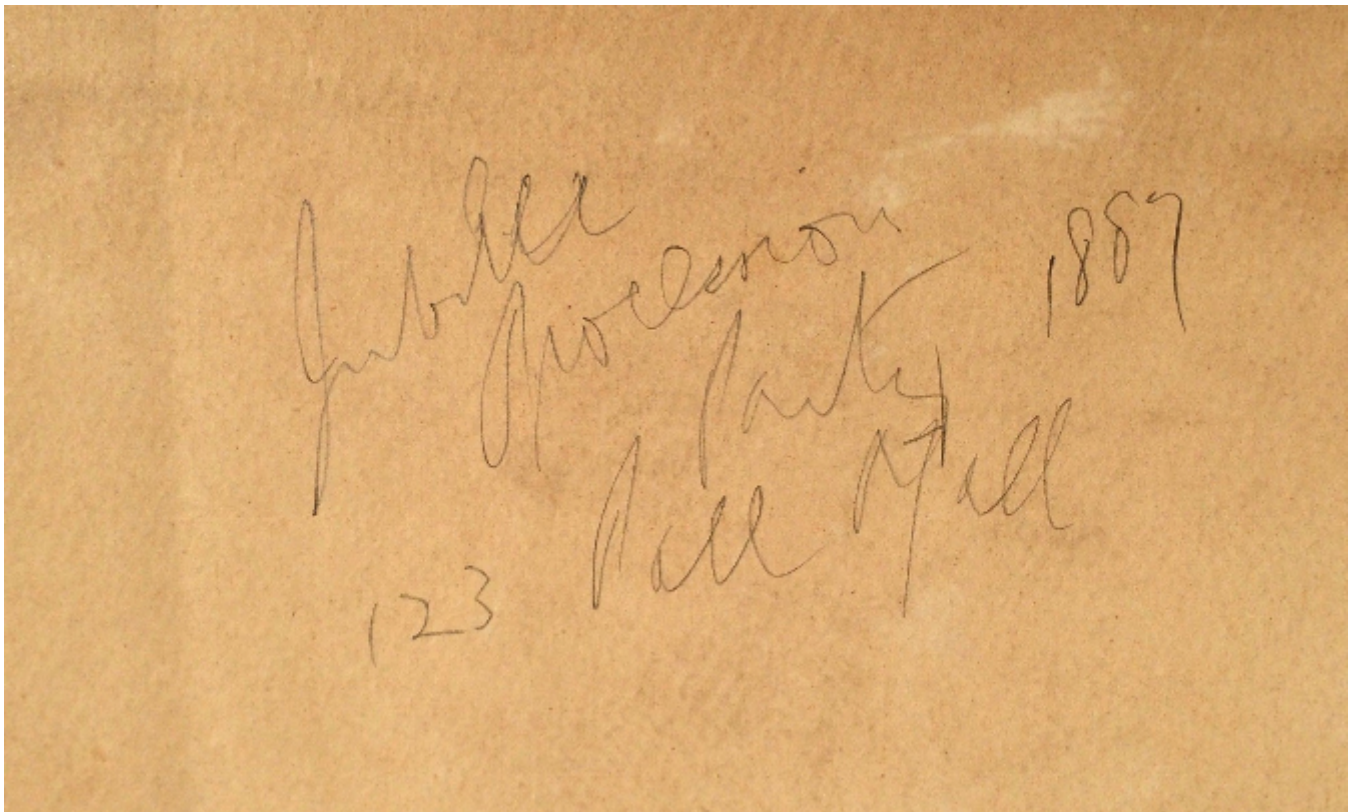 Jubilee
Procession
Party 1887
123 Pall Mall